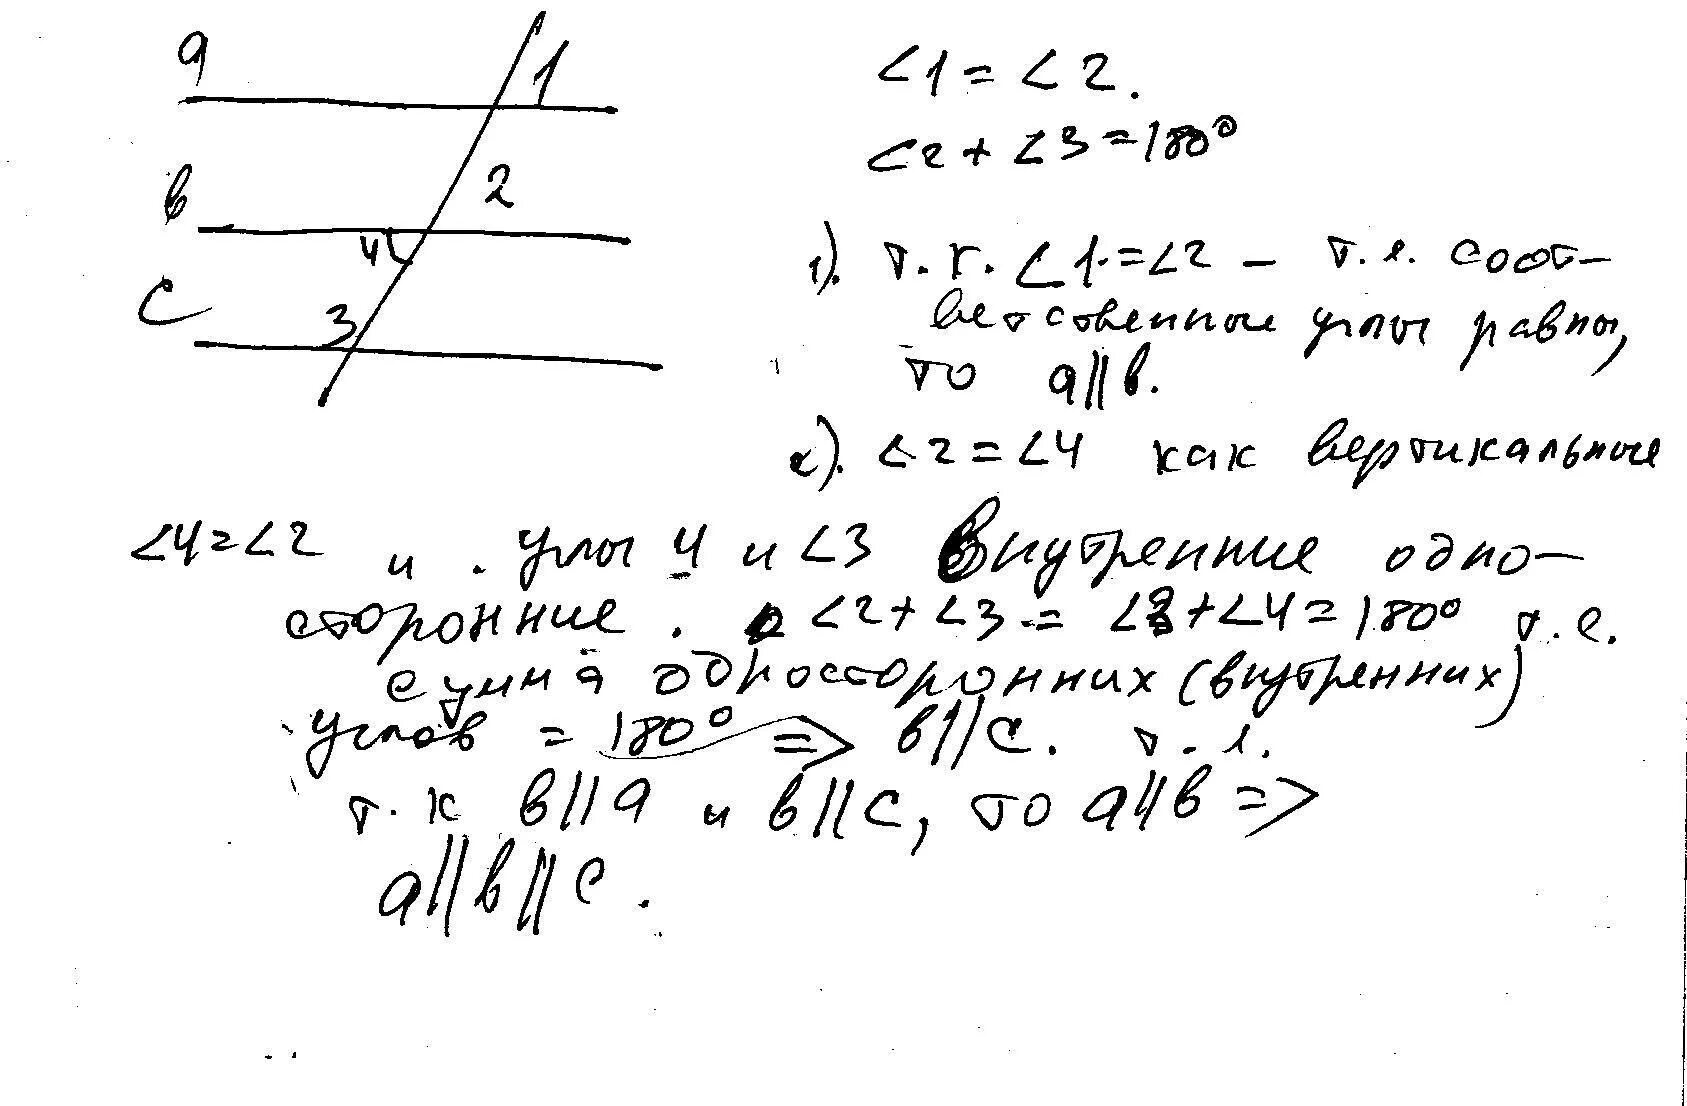 a
1
∠1 = ∠2.
∠2 + ∠3 = 180°
в
2
4
с
3
1). т.к. ∠1 = ∠2 – т.е. соот-
ветственные углы равны,
то a∥в.
2). ∠2 = ∠4 как вертикальные
∠4 = ∠2 и . углы 4 и ∠3 внутренние одно-
сторонние . ∠2 + ∠3 = ∠3 + ∠4 = 180° т.е.
сумма односторонних (внутренних)
углов = 180° => в∥с. т.е.
т.к в∥a и в∥с, то a∥в =>
a∥в∥с.